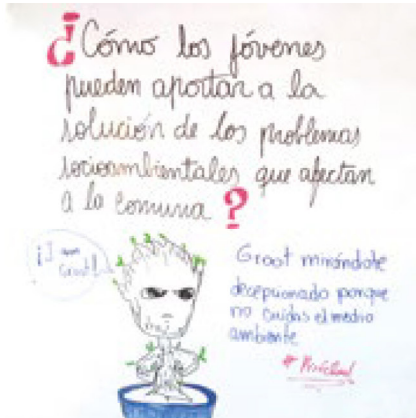 ¿Cómo los jóvenes
pueden aportar a la
solución de los problemas
socioambientales que afectan
a la comuna?
¡I am
Groot!
Groot mirándote
decepcionado porque
no cuidas el medio
ambiente
#